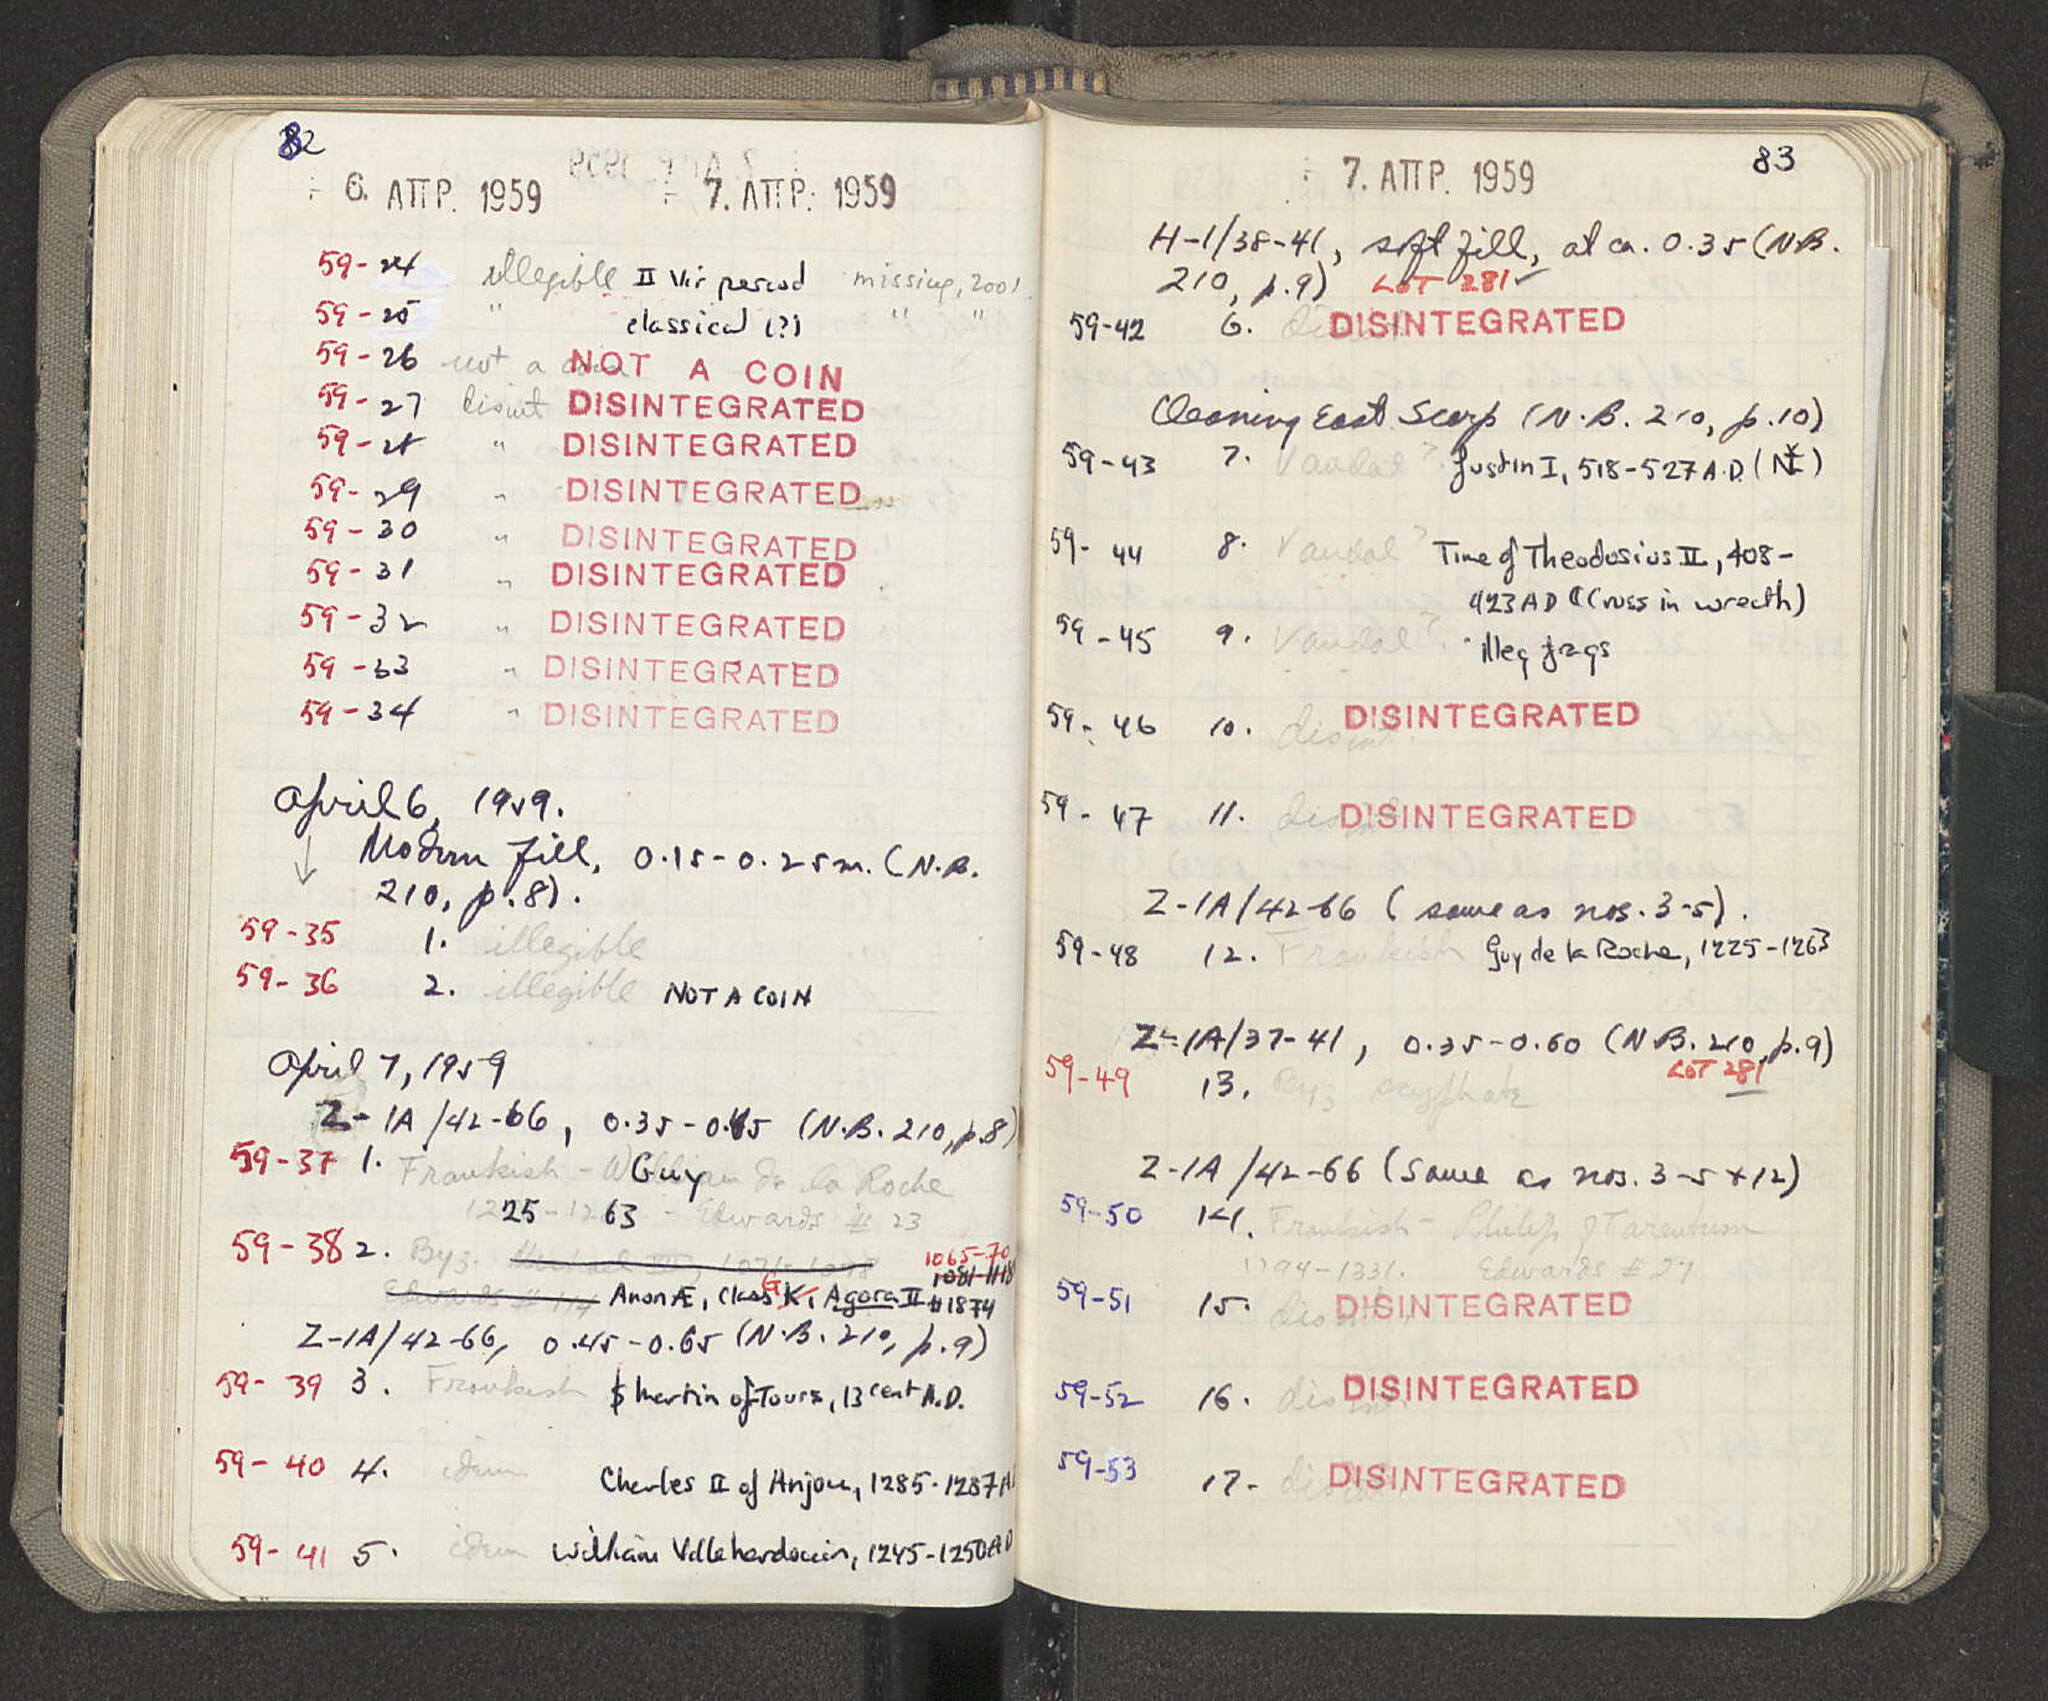 82
6. ΑΠΡ. 1959 7. ΑΠΡ. 1959
59-24 illegible II Vir period missing, 2001
59-25 " classical (?) " "
59-26 not a coin NOT A COIN
59-27 disint DISINTEGRATED
59-28 " DISINTEGRATED
59-29 " DISINTEGRATED
59-30 " DISINTEGRATED
59-31 " DISINTEGRATED
59-32 " DISINTEGRATED
59-33 " DISINTEGRATED
59-34 " DISINTEGRATED
April 6, 1959.
Modern fill, 0.15-0.25m. (N.B.
210, p.8).
59-35 1. illegible
59-36 2. illegible NOT A COIN
April 7, 1959
Z-1A/42-66, 0.35-0.45 (N.B. 210, p.8)
59-37 1. Frankish - Guy de la Roche
1225-1263 - Edwards # 23
59-38 2. Byz. 1065-70
1081-1118
Anon Æ, Class G K, Agora II #1874
Z-1A/42-66, 0.45-0.65 (N.B. 210, p.9)
59-39 3. Frankish Martin of Tours, 13 cent A.D.
59-40 4. idem Charles II of Anjou, 1285-1287 A
59-41 5. idem William Villehardouin, 1245-1250 AD
83
7. ΑΠΡ. 1959
H-1/38-41, soft fill, at ca. 0.35 (N.B.
210, p.9) LOT 281
59-42 6. DISINTEGRATED
Cleaning East Scarp (N.B. 210, p.10)
59-43 7. Vandal? Justin I, 518-527 A.D.
59-44 8. Vandal? Time of Theodosius II, 408-
423 AD (Cross in wreath)
59-45 9. Vandal? illeg frags
59-46 10. disint. DISINTEGRATED
59-47 11. disint DISINTEGRATED
Z-1A/42-66 (same as nos. 3-5).
59-48 12. Frankish Guy de la Roche, 1225-1263
Z-1A/37-41, 0.35-0.60 (N.B. 210, p.9)
LOT 281
59-49 13. Byz scyphate
Z-1A/42-66 (same as nos. 3-5 + 12)
59-50 14. Frankish - Philip of Tarentum
1294-1331. Edwards # 27
59-51 15. disint. DISINTEGRATED
59-52 16. disint. DISINTEGRATED
59-53 17. disint DISINTEGRATED